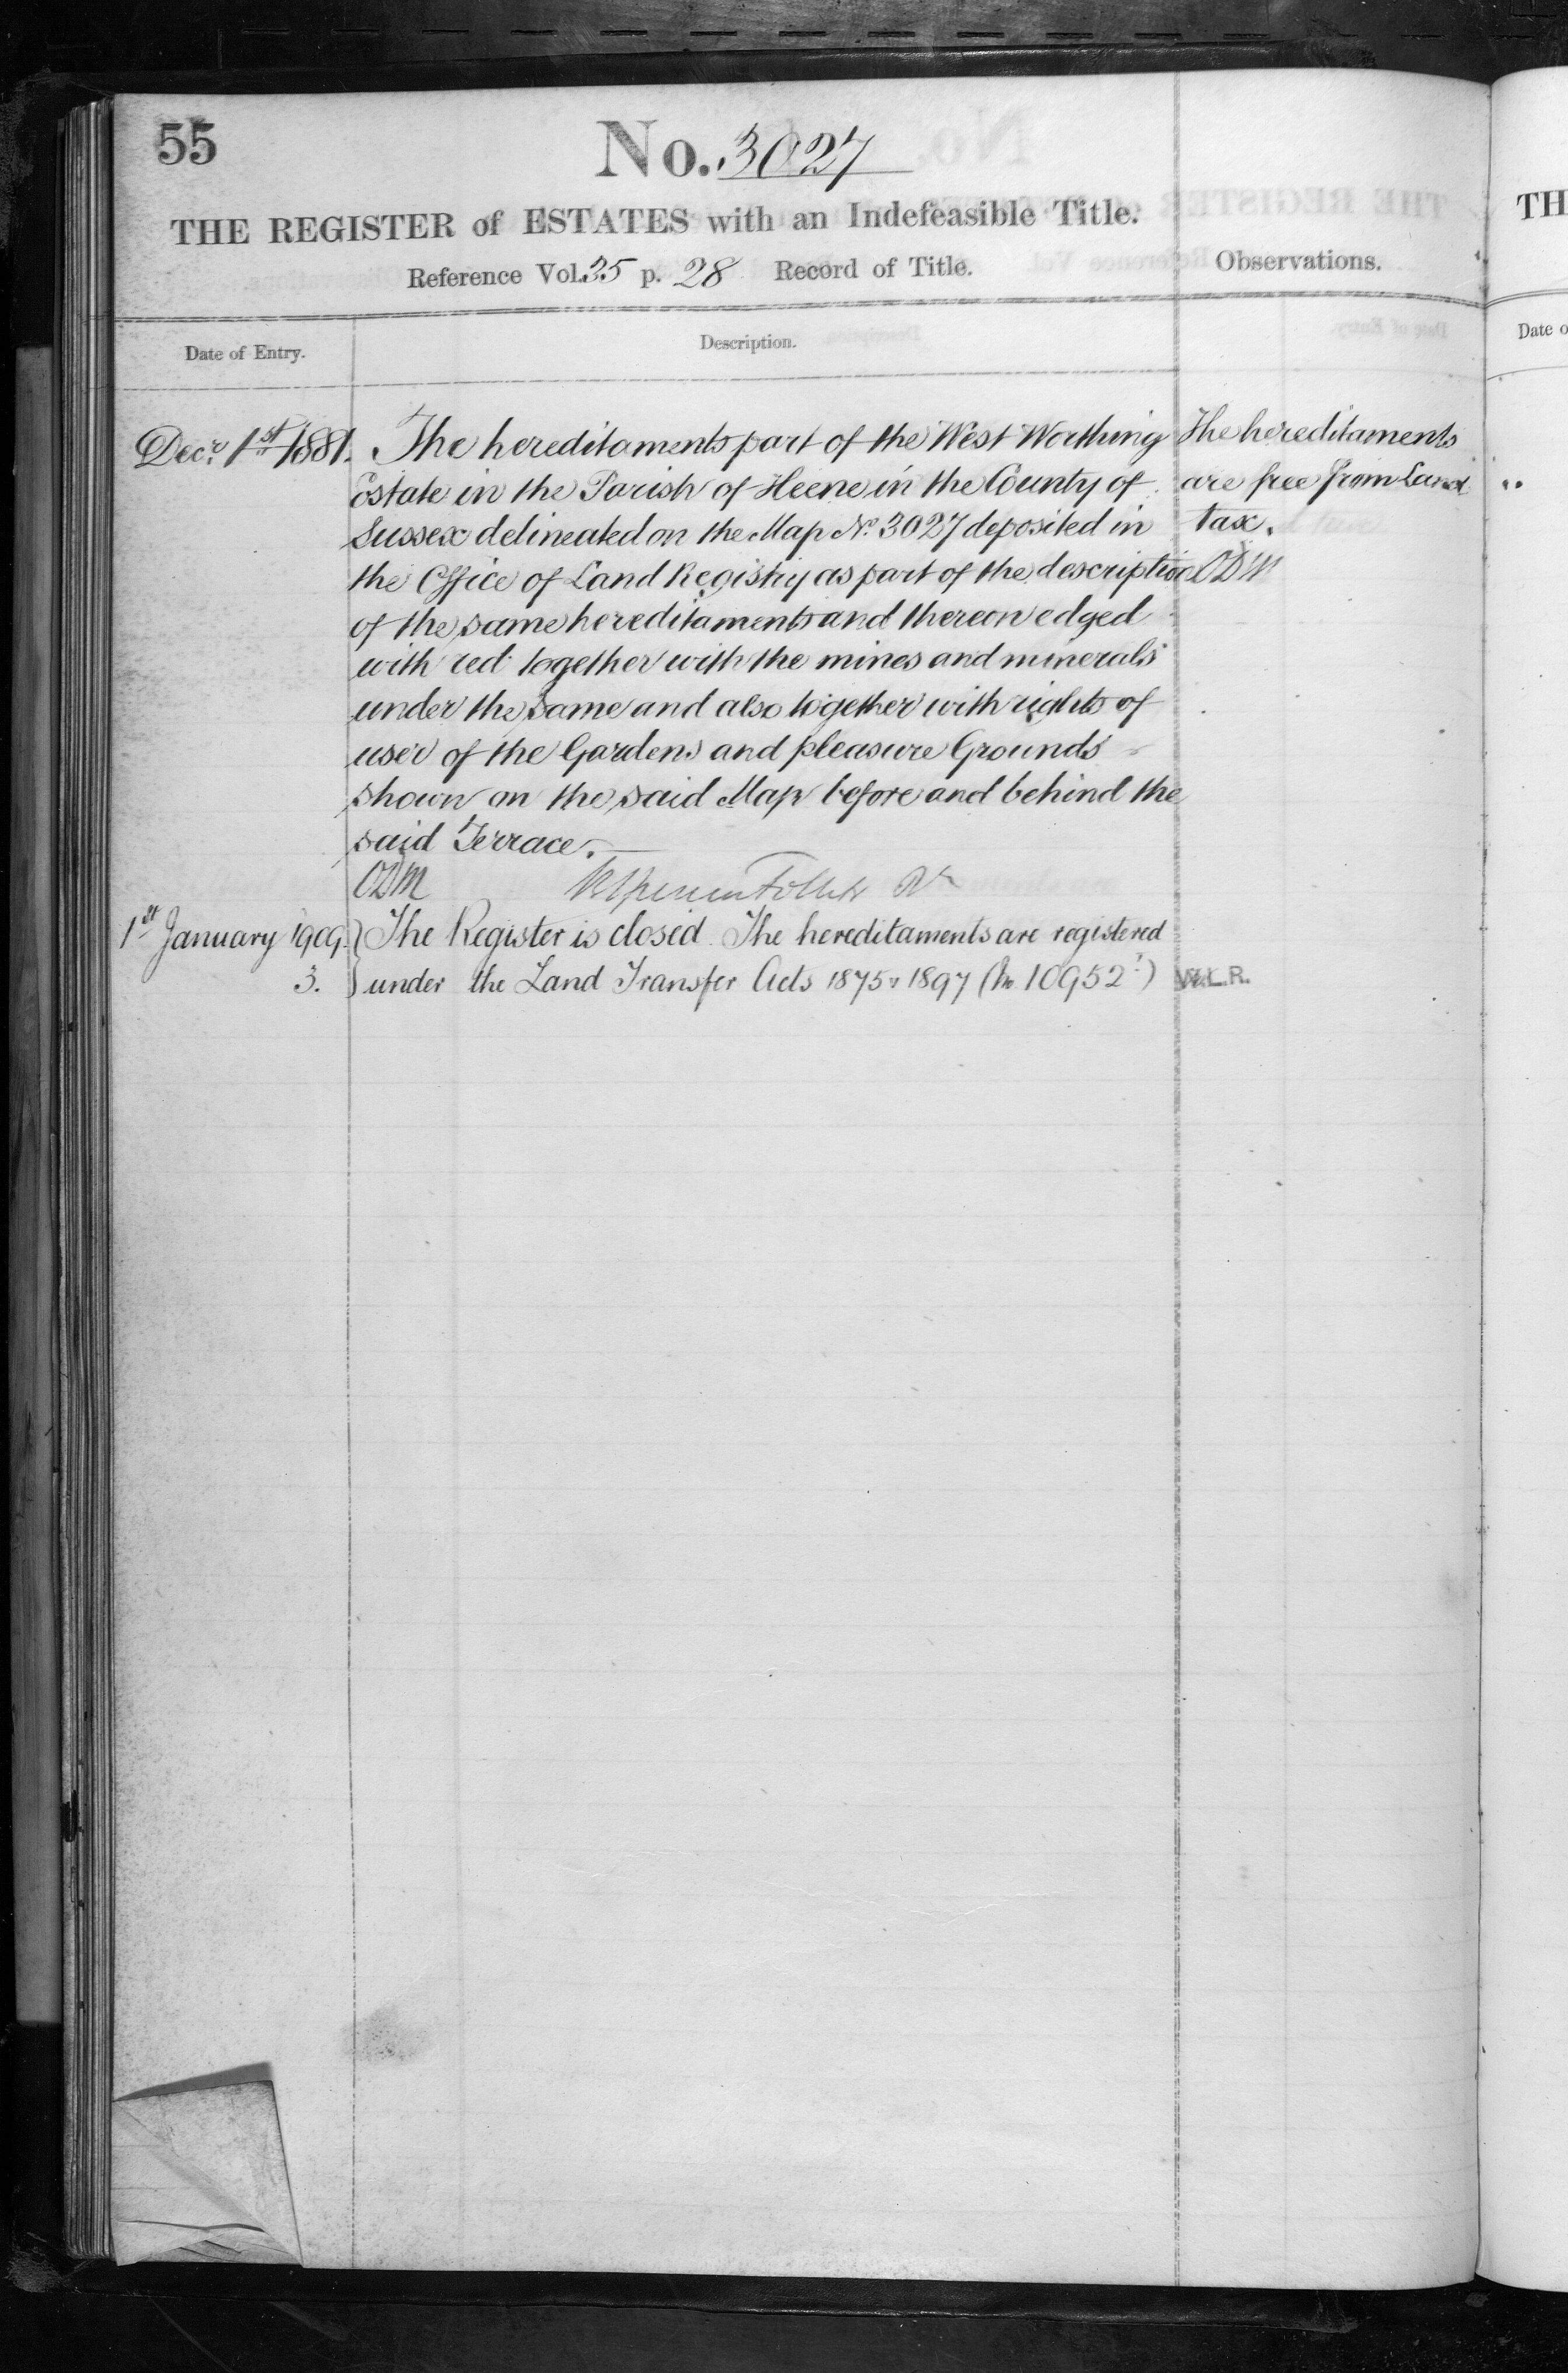 55
No. 3027
THE REGISTER of ESTATES with an Indefeasible Title.
Reference Vol. 35 p. 28 Record of Title.
Observations.
Date of Entry.
Description.
Decr. 1st 1881.
The hereditaments part of the West Worthing
Estate in the Parish of Heene in the County of
Sussex delineated on the Map No. 3027 deposited in
the Office of Land Registry as part of the description
of the same hereditaments and thereon edged
with red together with the mines and minerals
under the same and also together with rights of
user of the Gardens and pleasure Grounds
shown on the said Map before and behind the
said Terrace.
ODM
The hereditaments
are free from Land
tax.
ODM
1st January 1909.
3.
The Register is closed. The hereditaments are registered
under the Land Transfer Acts 1875 & 1897 (No. 10952)
W.L.R.
TH
Date o